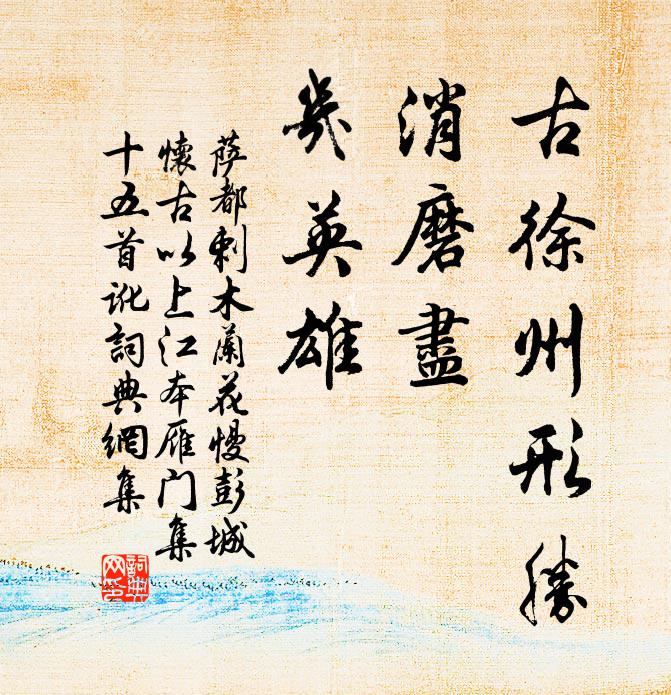 古徐州形勝
消磨盡
幾英雄
薩都剌木蘭花慢彭城
懷古以上江本雁门集
十五首訛詞典網集
詞典
网集